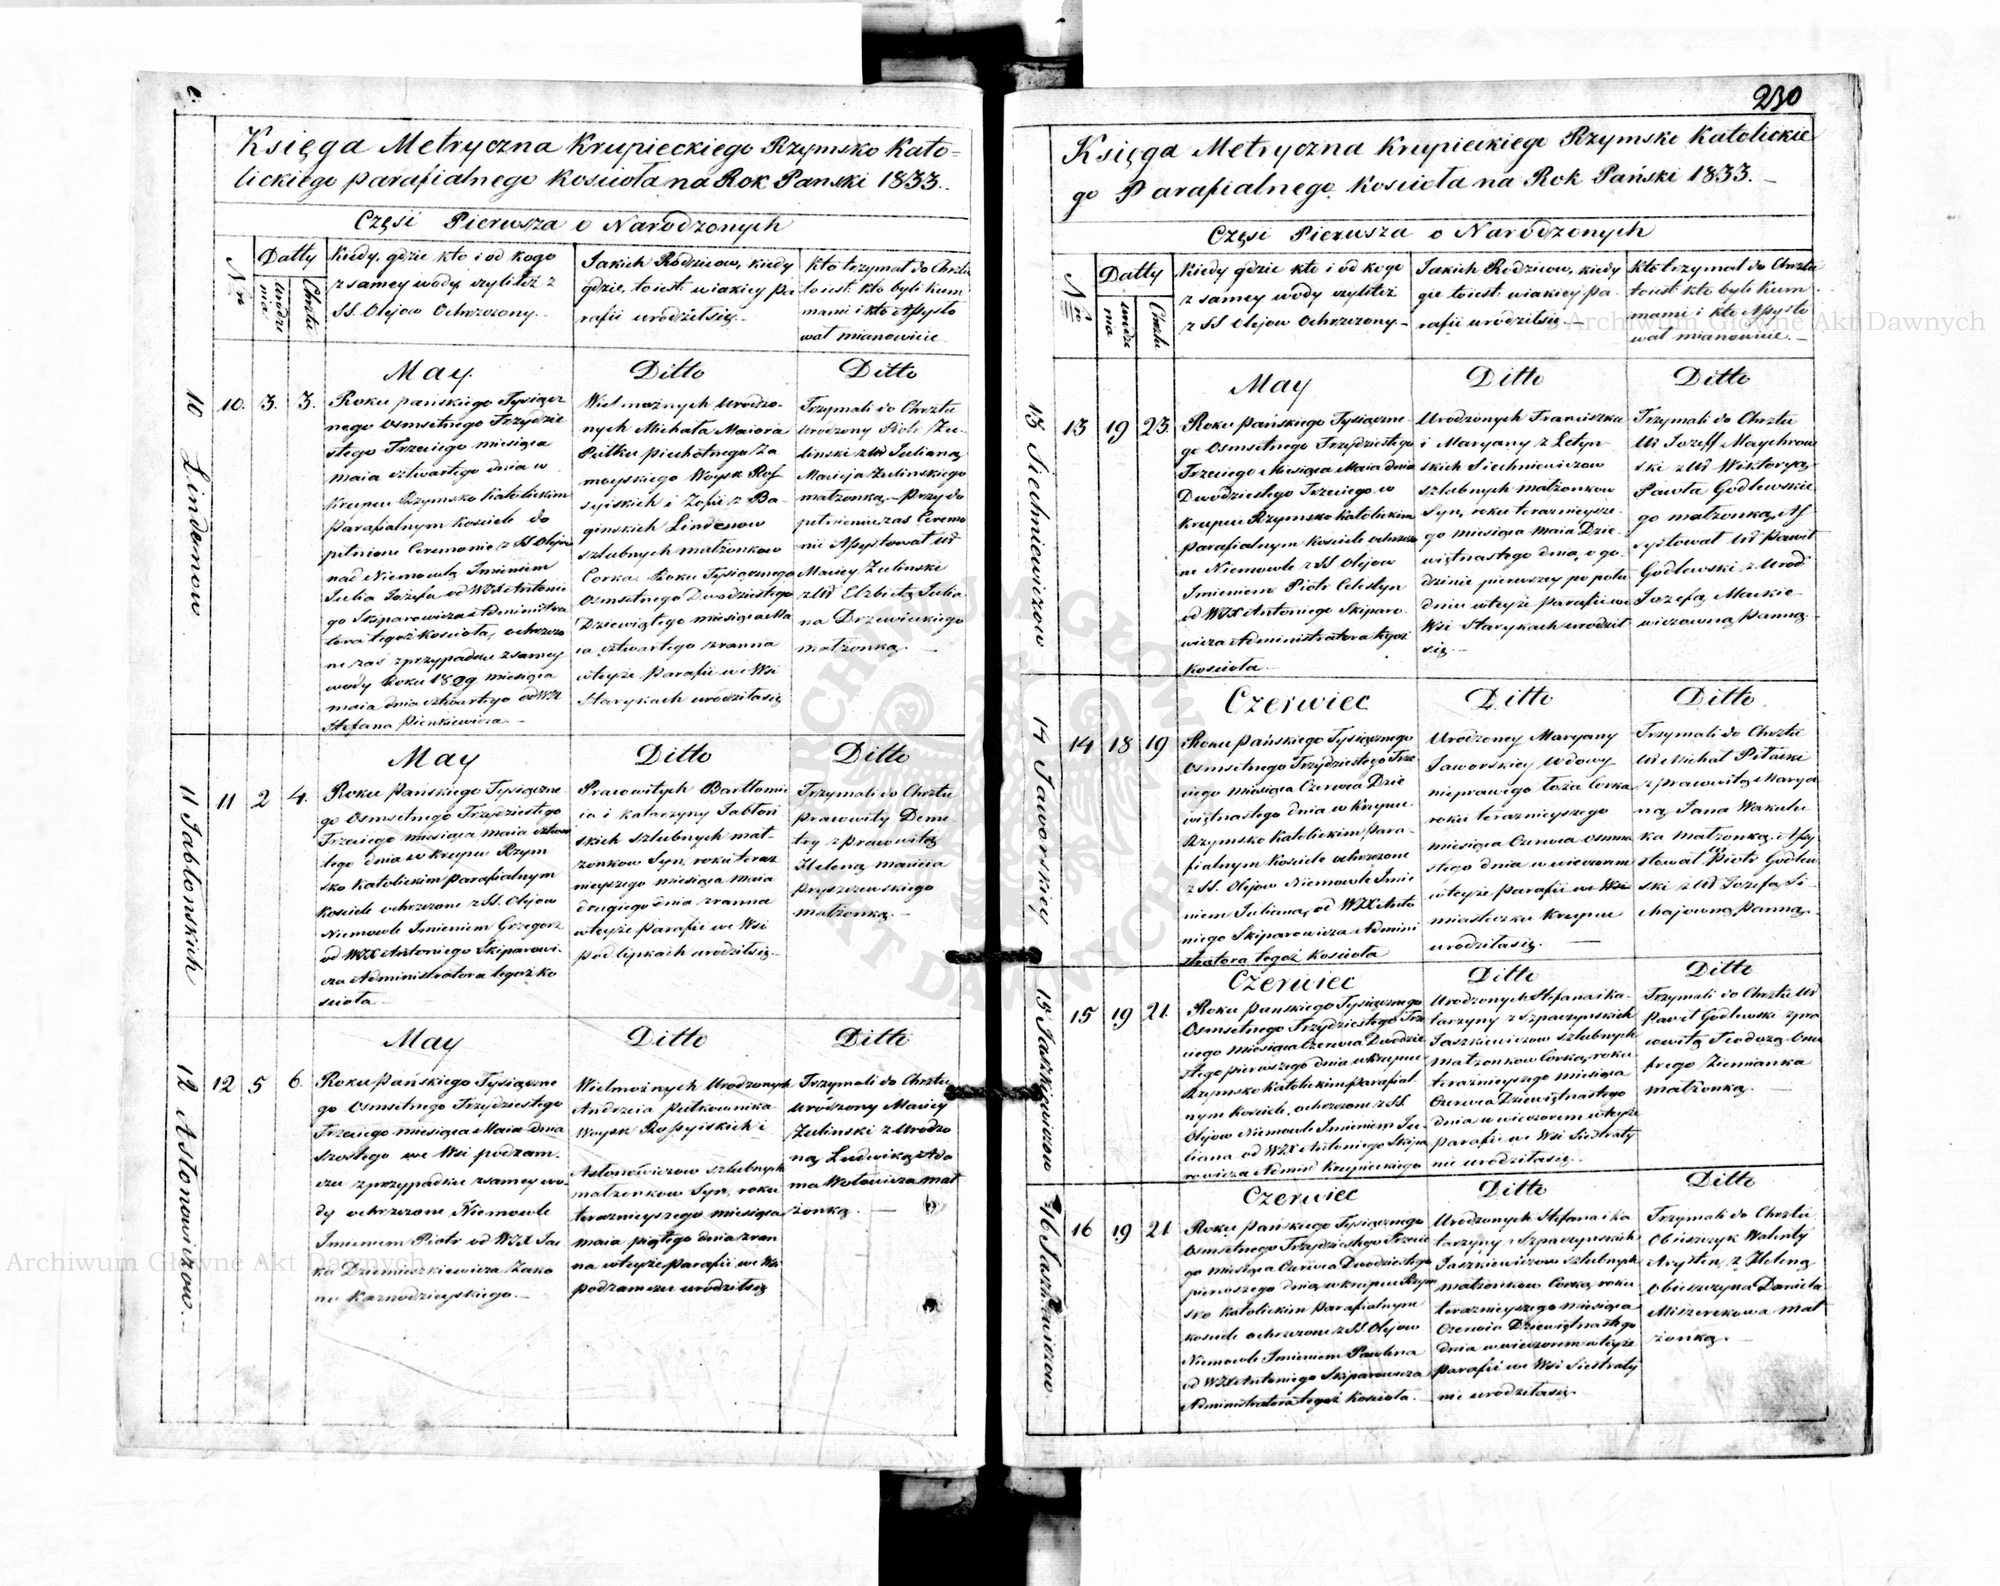 230
Księga Metryczna Krupieckiego Rzymsko Kato-
lickiego parafialnego koscioła na Rok Panski 1833.
Częsć Pierwsza o Narodzonych
Nro
Datty
urodze
nia
Chrztu
Kiedy, gdzie kto i od kogo
z samey wody, czyliteż z
SS. Olejow Ochrzczony.
Jakich Rodzicow, kiedy
gdzie, to iest: w iakiey pa
rafii urodził się.
Kto trzymał do Chrztu
to iest: kto byli kum
mami i kto Assysto
wał mianowicie
10 Lindenow
10. 3. 3.
May.
Roku pańskiego Tysiącz
nego Osmsetnego Trzydzie
stego Trzeciego miesiąca
maia czwartego dnia w
Krupcu Rzymsko Katolickim
Parafialnym Kosciele do
pełnione Ceremonie z SS Olejow
nad Niemowlą Imieniem
Julia Jozefa od WJX Antonie
go Skiparowicza Administra
tora tegoż Kościoła, ochrzczo
ne zas z przypadku z samey
wody Roku 1829 miesiąca
maia dnia czwartego od WJX
Stefana Pienkiewicza.
Ditto
Wielmożnych Urodzo-
nych Michała Maiora
Pułku piechotnego Za
moyskiego Woysk Ros
syiskich i Zofii z Ba
ginskich Lindenow
szlubnych małżonkow
Corka. Roku Tysiącznego
Osmsetnego Dwodziestego
Dziewiątego miesiąca Ma
ia czwartego zranna
wteyże Parafii we Wsi
Starykach urodziła się
Ditto
Trzymali do Chrztu
Urodzony Piotr Zu-
linski z Ur Julianą
Macieja Zulinskiego
małżonką, - Przy do
pełnieniu zas Ceremo
nii Assystował Ur
Maciey Zulinski
z Ur Elzbietą Julia
na Drzewieckiego
małżonką.
11 Jabłonskich
11 2 4.
May
Roku Pańskiego Tysiączne
go Osmsetnego Trzydziestego
Trzeciego miesiąca maia czwar
tego dnia w Krupcu Rzym
sko Katolickim parafialnym
Kosciele ochrzczone z SS. Olejow
Niemowle Imieniem Grzegorz
od WJX Antoniego Skiparowi-
cza Administratora tegoż ko
scioła
Ditto
Pracowitych Bartłomie
ia i Katarzyny Jabłoń
skich szlubnych mał-
żonkow Syn, roku teraz
nieyszego miesiąca maia
drugiego dnia zranna
wteyże parafii we Wsi
pod lipkach urodził się.
Ditto
Trzymali do Chrztu
pracowity Deme-
try z pracowitą
Heleną
Pryszczewskiego
małżonką. -
12 Astonowiczow.
12 5 6.
May
Roku Pańskiego Tysiączne
go Osmsetnego Trzydziestego
Trzeciego miesiąca Maia dnia
szostego we Wsi podzam-
czu z przypadku z samey wo-
dy ochrzczone Niemowle
Imieniem Piotr od WJX Jac
ka Dziemieszkiewicza Zako
nu Kaznodzieyskiego. -
Ditto
Wielmożnych Urodzonych
Andrzeia Pułkownika
Woysk Rossyiskich i
Astonowiczow szlubnych
małżonkow Syn, roku
teraznieyszego miesiąca
maia piątego dnia zran
na wteyże parafii we Wsi
podzamczu urodził się
Ditto
Trzymali do Chrztu
Urodzony Maciey
Zulinski z Urodzo
ną Ludwiką Ada
ma Wołowicza mał
żonką. -
Księga Metryczna Krupieckiego Rzymsko Katolickie
go Parafialnego Koscioła na Rok Pański 1833. -
Częsć Pierwsza o Narodzonych
Nro
Datty
urodze
nia
Chrztu
Kiedy gdzie kto i od kogo
z samey wody czyliteż
z SS Olejow Ochrzczony. -
Jakich Rodzicow, kiedy
gdzie to iest w iakiey pa-
rafii urodził się. -
Kto trzymał do Chrztu
to iest kto byli kum-
mami i kto Assysto
wał mianowicie. -
13 Siechniewiczow
13 19 23
May
Roku Pańskiego Tysiączne-
go Osmsetnego Trzydziestego
Trzeciego Miesiąca Maia dnia
Dwodziestego Trzeciego w
Krupcu Rzymsko Katolickim
parafialnym Kosciele ochrzczo
ne Niemowle z SS Olejow
Imieniem Piotr Celestyn
od WJX Antoniego Skiparo-
wicza Administratora tegoż
Kościoła. -
Ditto
Urodzonych Franciszka
i Maryany z Letyn-
skich Siechniewiczow
szlubnych małżonkow
Syn, roku teraznieysze-
go miesiąca maia Dzie-
więtnastego dnia, o go-
dzinie pierwszey po połu
dniu wteyże parafii we
Wsi Starykach urodził
się. -
Ditto
Trzymali do Chrztu
Ur Jozeff Maychrow
ski z Ur Wiktoryą
Pawła Godlewskie
go małżonką, As
systował Ur Paweł
Godlewski z Urod
Jozefą Mackie
wiczowną Panną.
14 Jaworskiey
14 18 19
Czerwiec
Roku Pańskiego Tysiącznego
Osmsetnego Trzydziestego Trze
ciego Miesiąca Czerwca Dzie
więtnastego dnia w Krupcu
Rzymsko Katolickim Para-
fialnym Kosciele ochrzczone
z SS. Olejow Niemowle Imie
niem Juliana, od WJX Anto
niego Skiparowicza Admini
stratora tegoż Kościoła
Ditto
Urodzoney Maryany
Jaworskiey Wdowy
nieprawego łoża Corka
roku teraznieyszego
miesiąca Czerwca osmna
stego dnia w wieczorem
wteyże parafii we Wsi
miasteczku Krupcu
urodziła się. -
Ditto
Trzymali do Chrztu
Ur Michał
z Pracowitą Marya
ną Jana Wakulu
ka małżonką. Assy
stował Ur Piotr Godlew
ski z Ur Jozefą
Panną.
15 Jaszkiewiczow
15 19 21
Czerwiec
Roku Panskiego Tysiącznego
Osmsetnego Trzydziestego Trze
ciego Miesiąca Czerwca Dwodzie
stego pierwszego dnia w Krupcu
Rzymsko Katolickim parafial
nym Kosciele, ochrzczone z SS.
Olejow Niemowle Imieniem Ju
liana od WJX Antoniego Skipa
rowicza Admin Krupieckiego
Ditto
Urodzonych Stefana i Ka-
tarzyny z Szpaczynskich
Jaszkiewiczow szlubnych
małżonkow Corka, roku
teraznieyszego miesiąca
Czerwca Dziewiętnastego
dnia w wieczorem wteyże
Parafii we Wsi Siestraty
nie urodziła się. -
Ditto
Trzymali do Chrztu Ur
Paweł Godlewski z pra
cowitą Teodozą Onu
frego Ziemianka
małżonką. -
16 Jaszkiewiczow
16 19 21
Czerwiec
Roku Pańskiego Tysiącznego
Osmsetnego Trzydziestego Trzecie
go miesiąca Czerwca Dwodziestego
pierwszego dnia, w Krupcu Rzym
sko Katolickim parafialnym
Kosciele ochrzczone z SS Olejow
Niemowle Imieniem Pawlina
od WJX Antoniego Skiparowicza
Administratora tegoż Kosciola. -
Ditto
Urodzonych Stefana i Ka
tarzyny z Szpaczynskich
Jaszkiewiczow szlubnych
małżonkow Corka, roku
teraznieyszego miesiąca
Czerwca Dziewiętnastego
dnia w wieczorem wteyże
parafii we Wsi Siestraty
nie urodziła się.
Ditto
Trzymali do Chrztu
Obieszczyk Walenty
z Heleną
Obieszczyka Daniela
mał
żonką. -
Archiwum Główne Akt Dawnych
Archiwum Główne Akt Dawnych
ARCHIWUM GŁÓWNE AKT DAWNYCH